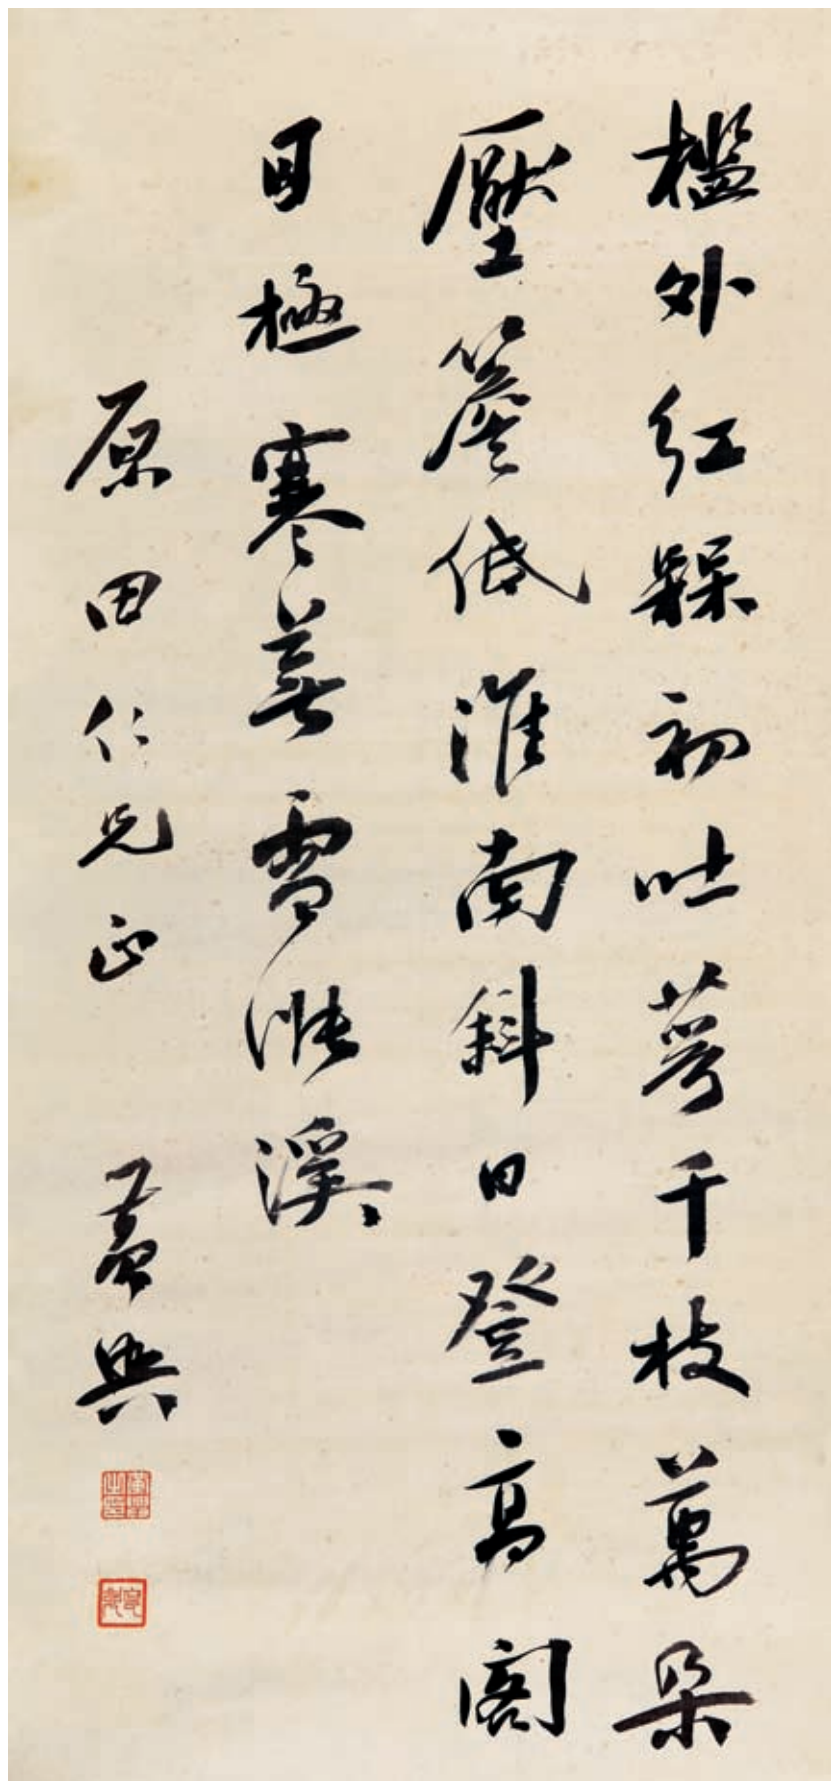 檻外紅槑初吐萼千枝萬朵
壓簷低淮南斜日登高閣
目極寒蕪雪漲溪
原田仁兄正
黃興